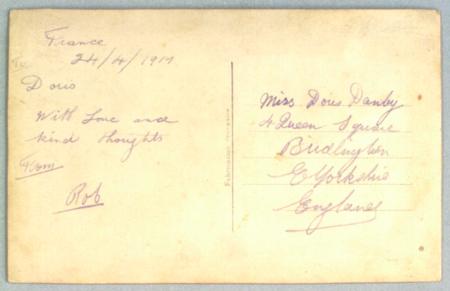 France
24/4/1917
To
Doris
With Love and
kind thoughts
From
Rob
Miss Doris Danby
4 Queen Square
Bridlington
E Yorkshire
England